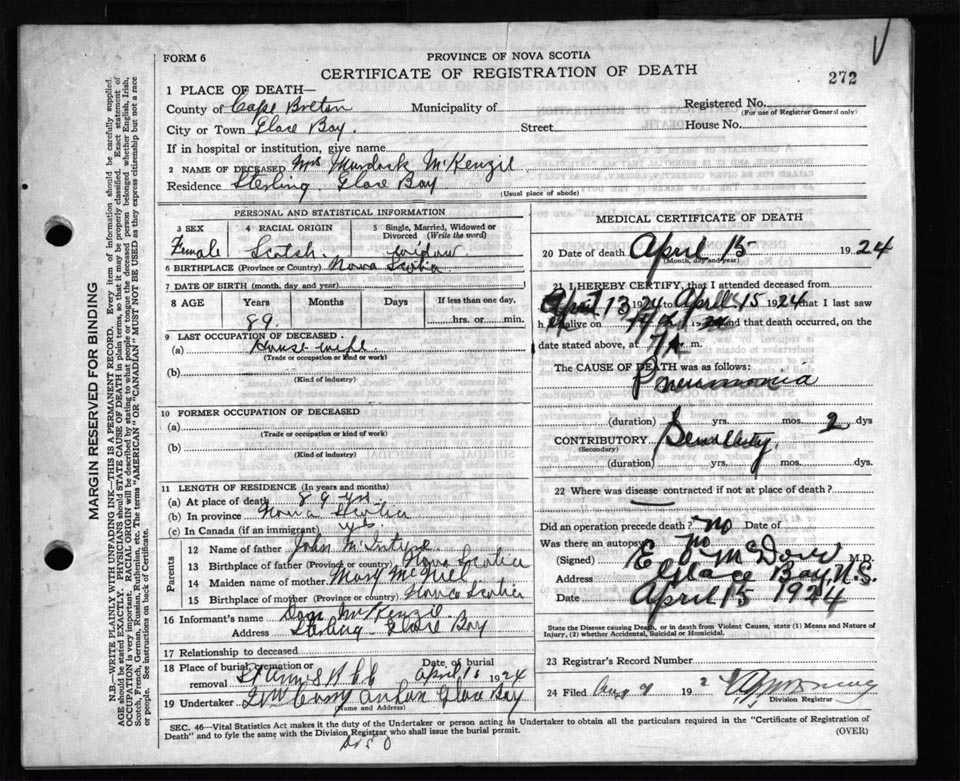 FORM 6
PROVINCE OF NOVA SCOTIA
CERTIFICATE OF REGISTRATION OF DEATH
272
1 PLACE OF DEATH—
County of Cape Breton Municipality of Registered No.
(For use of Registrar General only)
City or Town Glace Bay. Street House No.
If in hospital or institution, give name
2 NAME OF DECEASED Mrs Murdock McKenzie
Residence Sterling. Glace Bay
(Usual place of abode)
PERSONAL AND STATISTICAL INFORMATION
3 SEX 4 RACIAL ORIGIN 5 Single, Married, Widowed or Divorced (Write the word)
Female Scotch widow
6 BIRTHPLACE (Province or Country) Nova Scotia
7 DATE OF BIRTH (month, day and year)
8 AGE Years Months Days If less than one day,
89. hrs. or min.
9 LAST OCCUPATION OF DECEASED
(a) House wife
(Trade or occupation or kind of work)
(b)
(Kind of industry)
10 FORMER OCCUPATION OF DECEASED
(a)
(Trade or occupation or kind of work)
(b)
(Kind of industry)
11 LENGTH OF RESIDENCE (In years and months)
(a) At place of death 89 yrs
(b) In province Nova Scotia
(c) In Canada (if an immigrant)
Parents
12 Name of father John McIntyre
13 Birthplace of father (Province or country) Nova Scotia
14 Maiden name of mother Mary McNeil
15 Birthplace of mother (Province or country) Nova Scotia
16 Informant's name Dan McKenzie
Address Sterling Glace Bay
17 Relationship to deceased
18 Place of burial, cremation or removal Date of burial
April 1924
19 Undertaker Glace Bay
(Name and Address)
MEDICAL CERTIFICATE OF DEATH
20 Date of death April 15 1924
(Month, day and year)
21 I HEREBY CERTIFY, that I attended deceased from
April 13 1924 to April 15 1924 that I last saw
h alive on and that death occurred, on the
date stated above, at 7 A m.
The CAUSE OF DEATH was as follows:
Pneumonia
(duration) yrs. mos. 2 dys
CONTRIBUTORY
(Secondary)
(duration) yrs. mos. dys.
22 Where was disease contracted if not at place of death?
Did an operation precede death? no Date of
Was there an autopsy no
(Signed) M.D.
Address Glace Bay, N.S.
Date April 15 1924
State the Disease causing Death, or in death from Violent Causes, state (1) Means and Nature of Injury, (2) whether Accidental, Suicidal or Homicidal.
23 Registrar's Record Number
24 Filed Aug 7 192
Division Registrar
SEC. 46—Vital Statistics Act makes it the duty of the Undertaker or person acting as Undertaker to obtain all the particulars required in the "Certificate of Registration of
Death" and to fyle the same with the Division Registrar who shall issue the burial permit. (OVER)
MARGIN RESERVED FOR BINDING
N.B.—WRITE PLAINLY WITH UNFADING INK—THIS IS A PERMANENT RECORD. Every item of information should be carefully supplied.
AGE should be stated EXACTLY. PHYSICIANS should STATE CAUSE OF DEATH in plain terms, so that it may be properly classified. Exact statement of
OCCUPATION is very important. RACIAL ORIGIN will be described by stating to what people or tongue the deceased person belonged whether English, Irish,
Scotch, French, German, Russian, Ruthenian, etc. The terms "AMERICAN" OR "CANADIAN" MUST NOT BE USED as they express citizenship but not a race
or people. See instructions on back of Certificate.